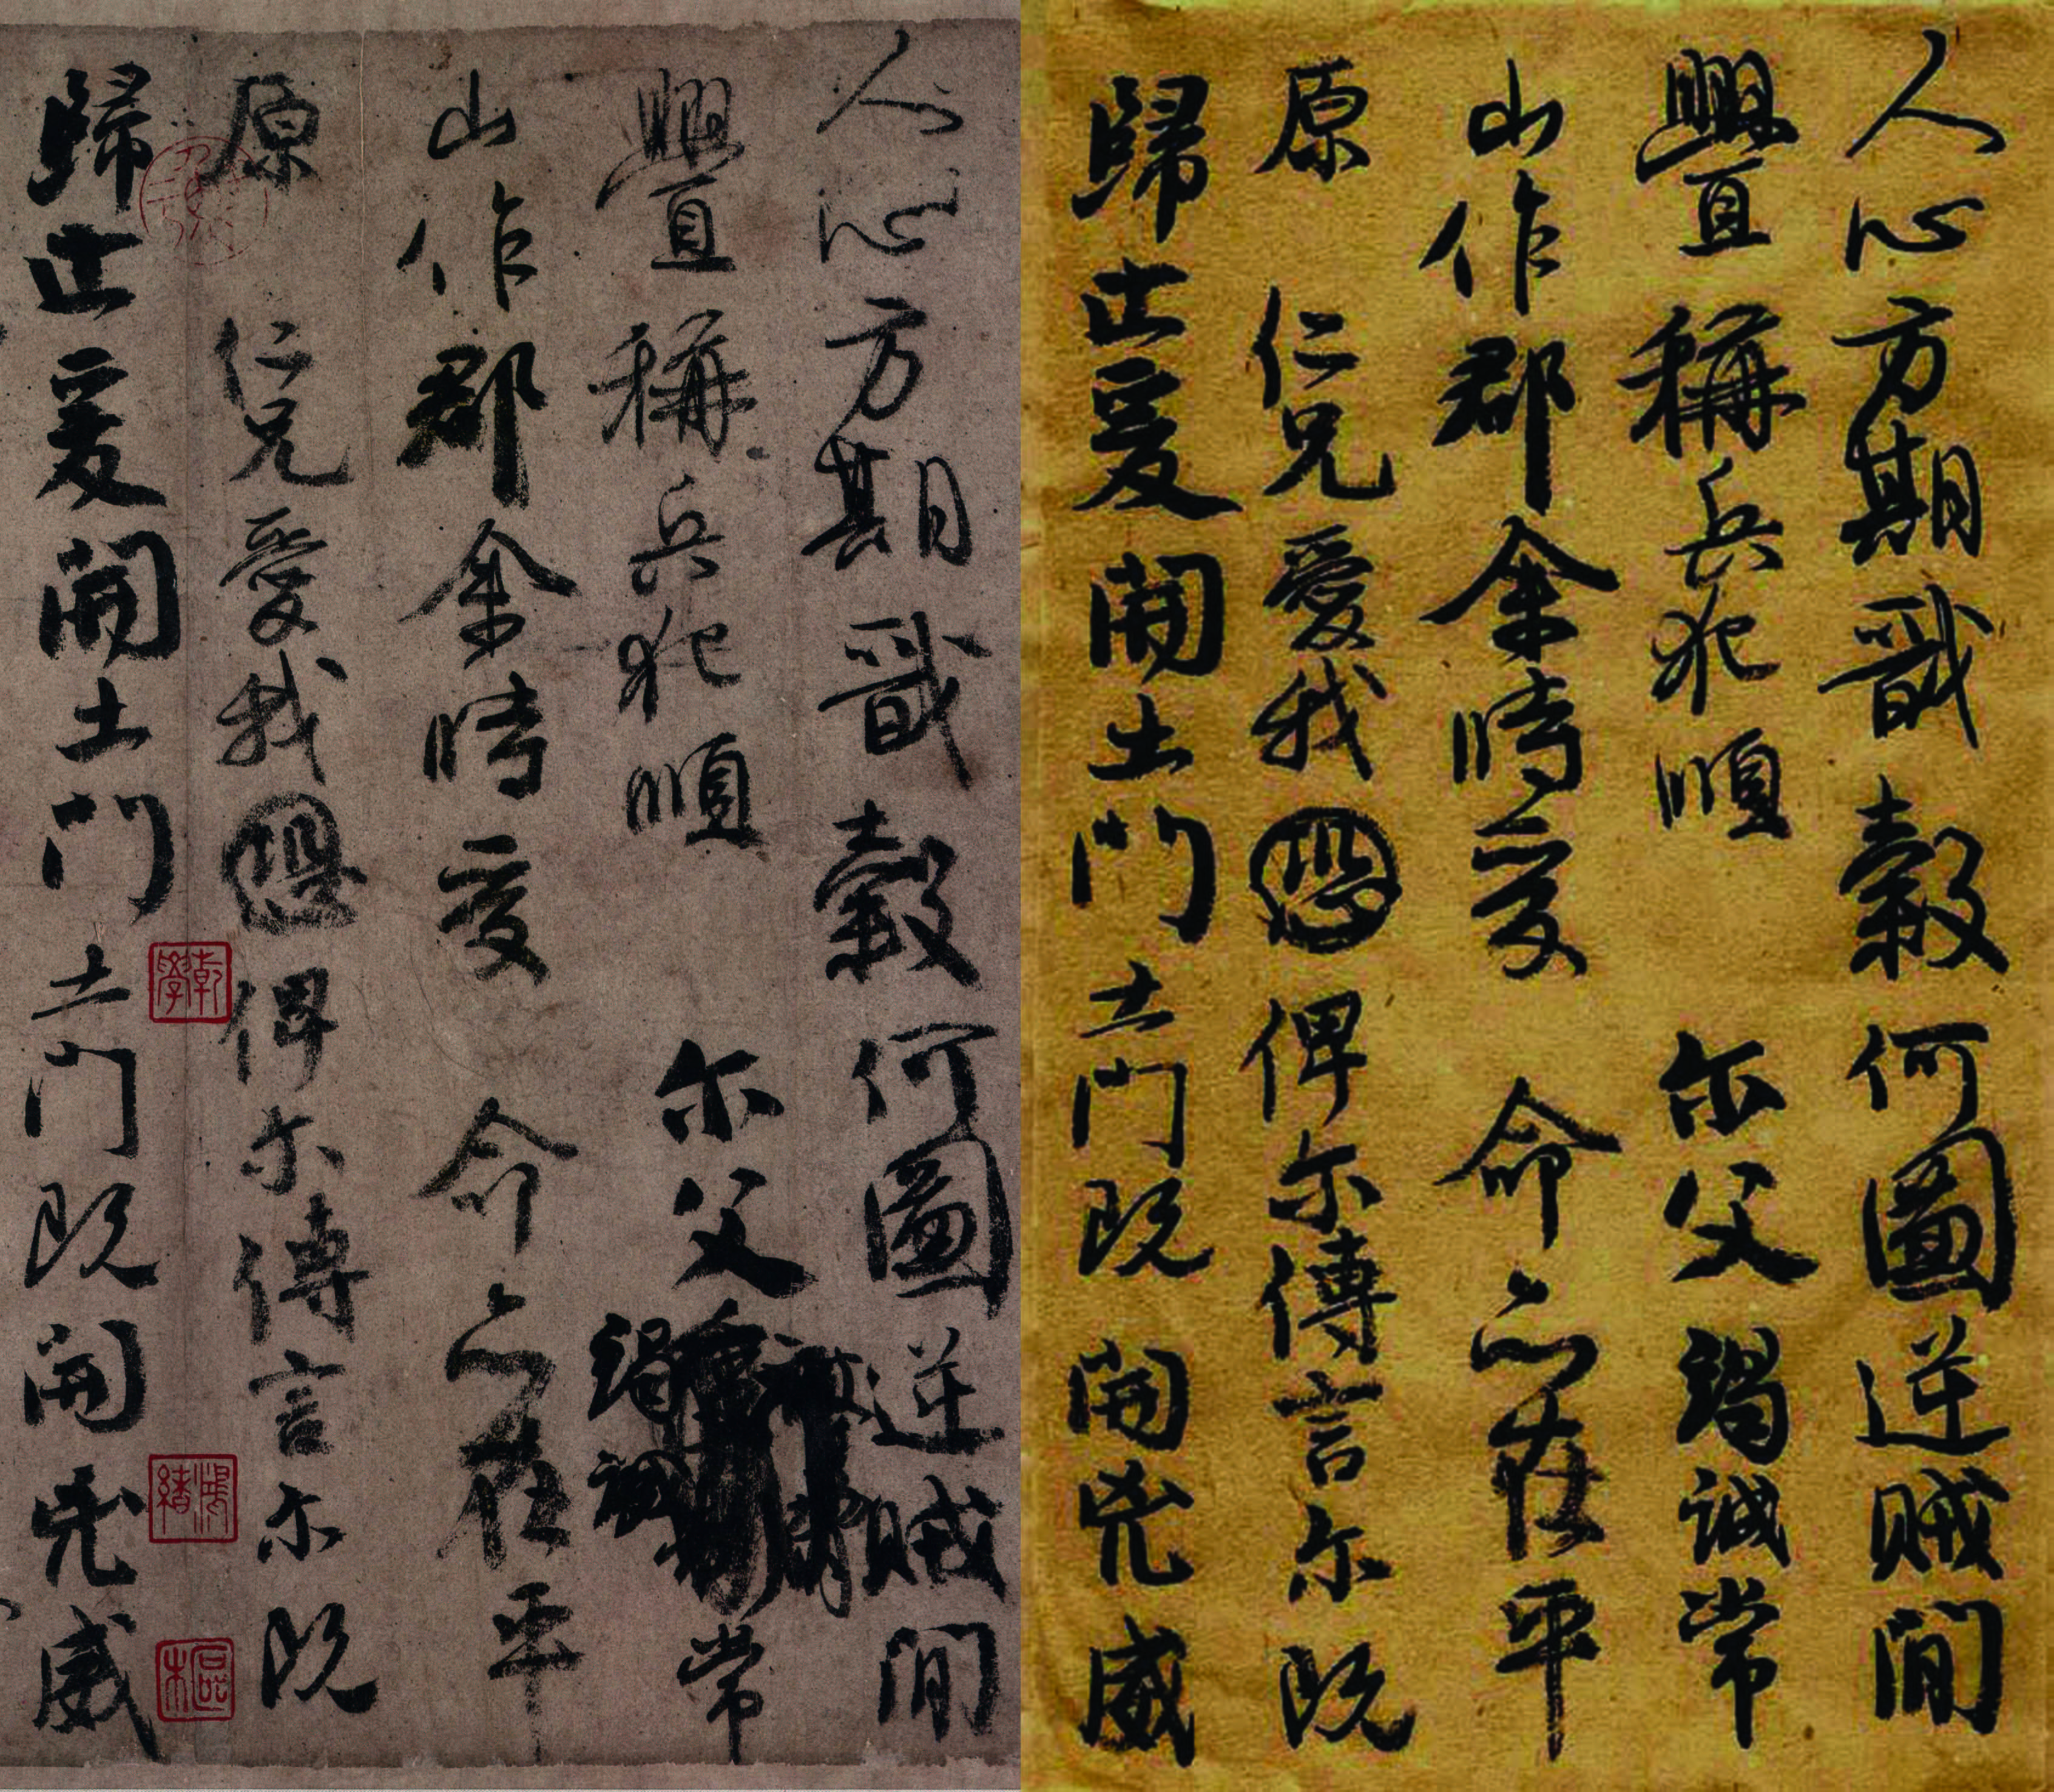 人心方期戩穀何圖逆賊間
釁稱兵犯順 尔父竭誠常
山作郡余時受 命亦在平
原 仁兄愛我恐俾尔傳言尔既
歸止爰開土門土門既開兇威
乾學
人心方期戩穀何圖逆賊間
釁稱兵犯順 尔父竭誠常
山作郡余時受 命亦在平
原 仁兄愛我恐俾尔傳言尔既
歸止爰開土門土門既開兇威